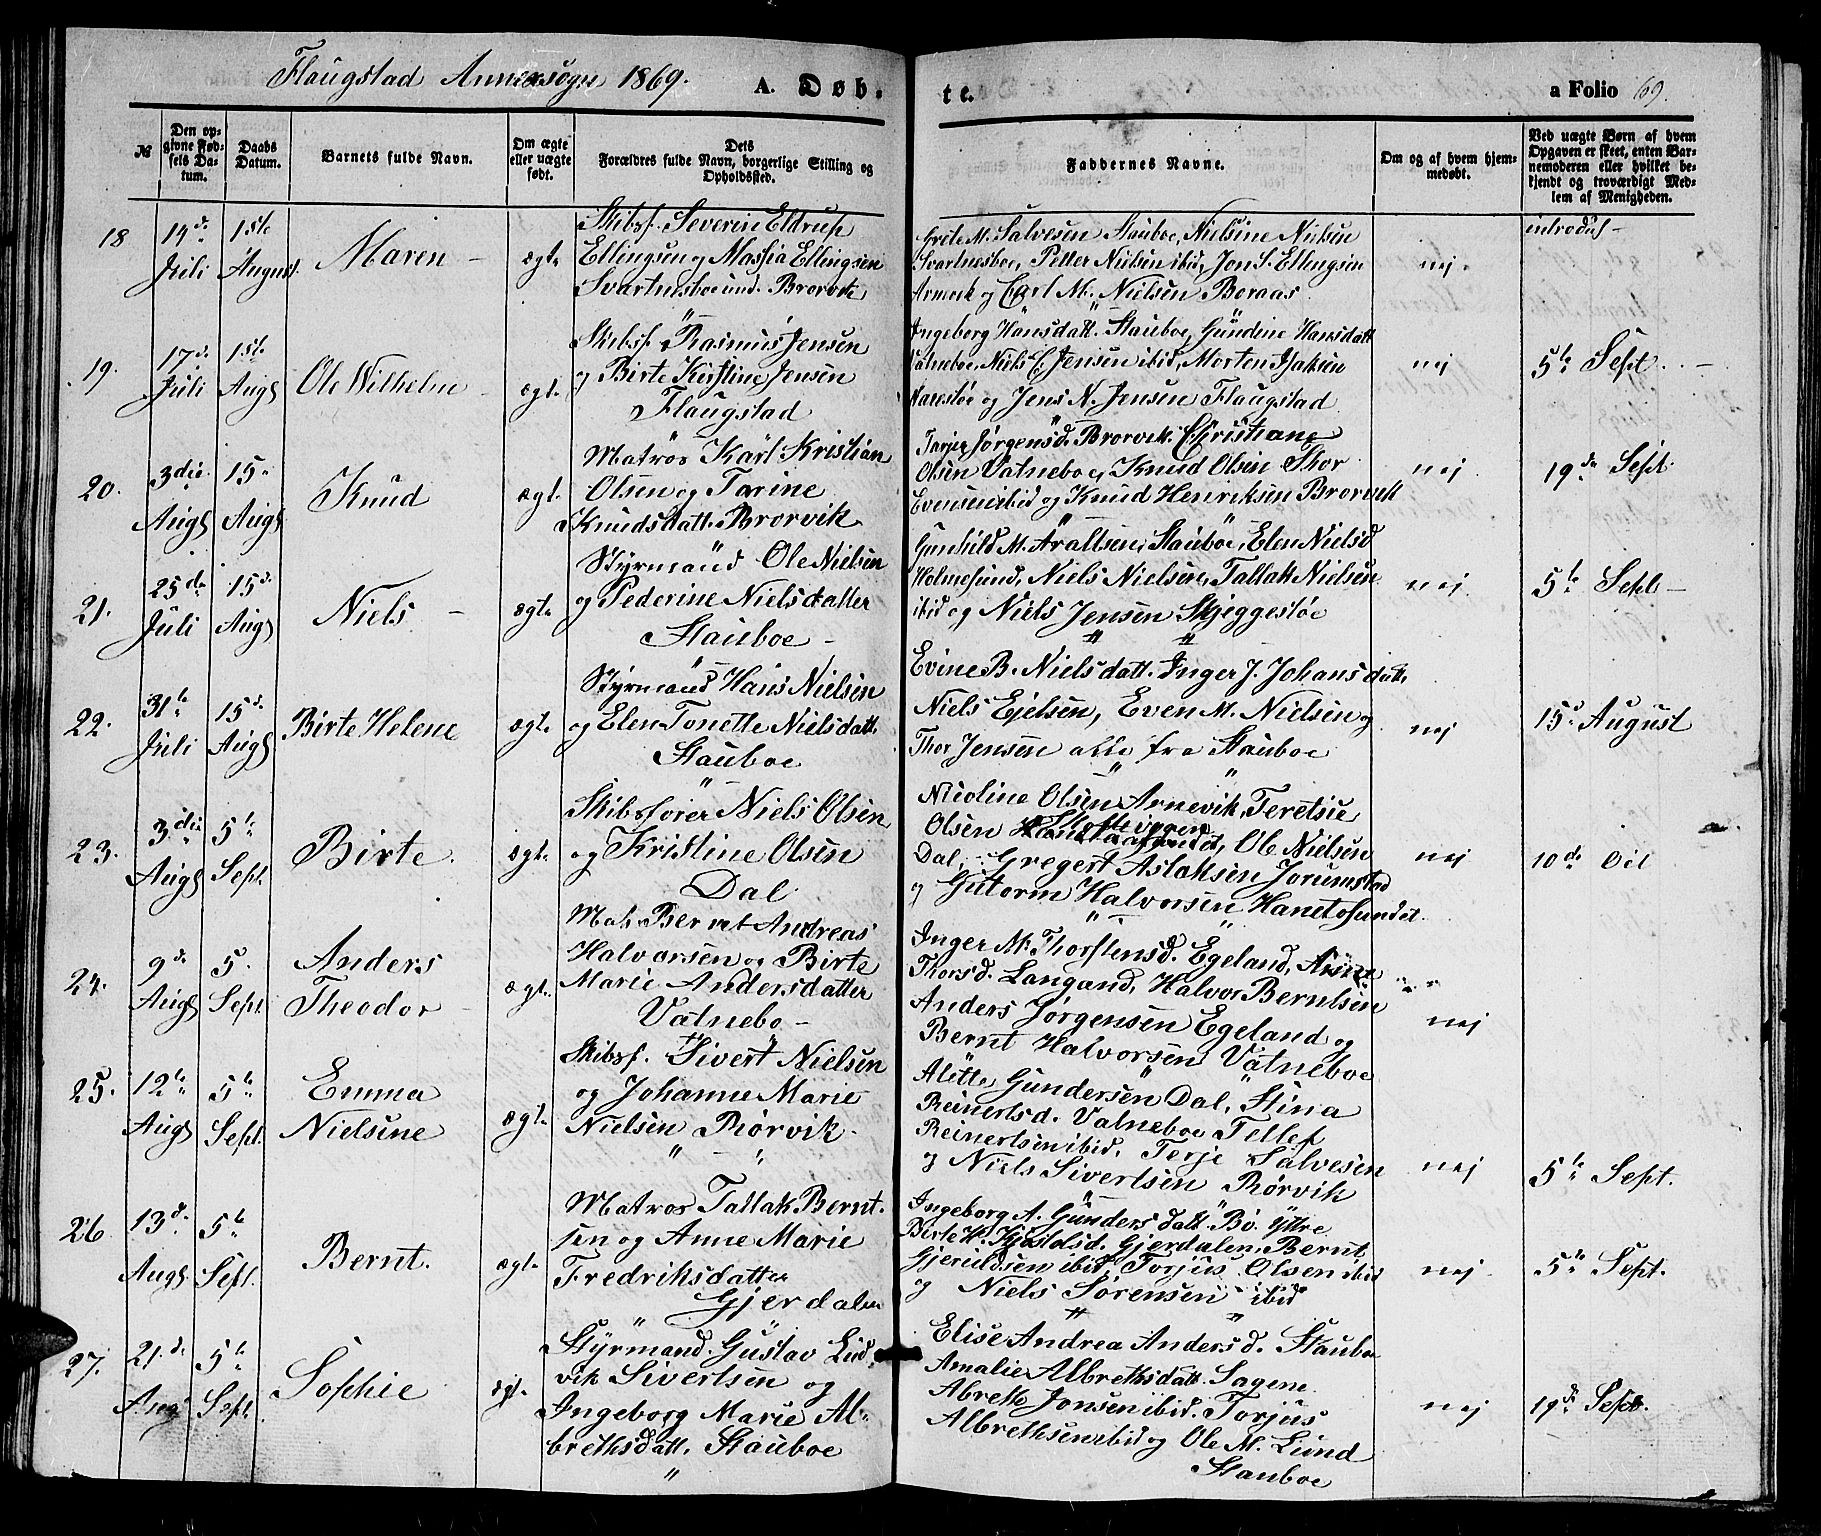 Flaugstad Annexsogn 1869. A. Døb. te. a Folio 69.
№
Den opgivne Fødsels Datum.
Daabs Datum.
Barnets fulde Navn.
Om ægte eller uægte født.
Dets Forældres fulde Navn, borgerlige Stilling og Opholdssted.
Faddernes Navne.
Om og af hvem hjemmedøbt.
Ved uægte Børn af hvem Opgaven er skeet, enten Barnemoderen eller hvilket bekjendt og troværdigt Medlem af Menigheden.
introdus
18
14de Juli
1ste August.
Maren
ægte
Skibsf. Severin Eldrup
Ellingsen og Massia Ellingsen
Svartnesboe und. Brorvik
Grete M. Salvesen Stauboe, Nielsine Nielsen
Svartnesboe, Petter Nielsen ibid, Jon S. Ellingsen
og Carl M. Nielsen Boraas.
nej.
19.
17de Juli
1ste Augs
Ole Wilhelm
ægt.
Skibsf. Rasmus Jensen
og Birte Kirstine Jensen
Flaugstad
Ingeborg Hansdatt. Stauboe, Gundine Hansdatt
Vatneboe, Niels C. Jensen ibid, Morten Isaksen
Narestøe og Jens N. Jensen Flaugstad
nej
5te Sept.
20.
3die Augs
15de Augs
Knud
ægt.
Matros Karl Kristian
Olsen og Tarine
Knudsdatt. Brorvik
Jørgensd. Brorvik. Christiane
Olsen Vatneboe, Knud Olsen Thor
Evensen ibid og Knud Henriksen Brorvik
nej
19de Sept.
21.
25de Juli
15de Augs
Niels
ægte
Styrmand Ole Nielsen
og Pederine Nielsdatter
Stauboe
Gunhild M. Araltsen, Stauboe, Elen Nielsd
Holmesund, Niels Nielsen, Tallak Nielsen
ibid og Niels Jensen Skjeggestøe
nej
5te Sept
22.
31te Juli
15de Augs
Birte Helene
ægt.
Styrmand Hans Nielsen
og Elen Tonette Nielsdatt.
Stauboe
Evine B. Nielsdatt. Inger J. Johansdatt.
Niels Ejelsen, Even M. Nielsen og
Thor Jensen alle fra Stauboe
nej
15de August
23.
3die Augs
5te Sept.
Birte.
ægt.
Skibsfører Niels Olsen
og Kristine Olsen
Dal
Nicoline Olsen Arnevik, Teretsie
Olsen, Ole Nielsen
Dal, Gregert Aslaksen Jorumstad
og Guttorm Halvorsen Hanetosundet.
nej
10de Oct
24.
9de Augs
5. Sept.
Anders
Theodor
ægt.
Mat. Bernt Andreas
Halvorsen og Birte
Marie Andersdatter
Vatnebo
Inger M. Thorstensd. Egeland, Anne
Thorsd. Langand, Halvor Berntsen
Anders Jørgensen Egeland og
Bernt Halvorsen Vatneboe
nej
25.
12te Augs
5te Sept.
Emma
Nielsine
ægt.
Skibsf. Sivert Nielsen
og Johanne Marie
Nielsen Rørvik
Alette Gundersen Dal, Stina
Reinertsd. Vatneboe Tellef
Reinertsen ibid. Terje Salvesen
og Niels Sivertsen Rørvik
nej
5te Sept.
26
13de Augs
5te Sept.
Bernt.
ægt.
Matros Tallak Bernt.
sen og Anne Marie
Fredriksdatter
Gjerdalen
Ingeborg A. Gundersdatt. Bo. Yttre
Birte H. Gjerdalen, Bernt
ibid, Torjus Olsen ibid
og Niels Sørensen ibid
nej
5te Sept.
27.
21de Augs
5te Sept.
Sophie
ægt.
Styrmand. Gustav Lud.
vik Sivertsen og
Ingeborg Marie Al-
brethsdatt. Stauboe
Elise Andrea Andersd. Stauboe
Amalie Albrethsdatt. Sagene
Abreth Jonsen ibid. Torjus
Albrethsen ibid og Ole M. Lund
Stauboe
nej
19de Sept.